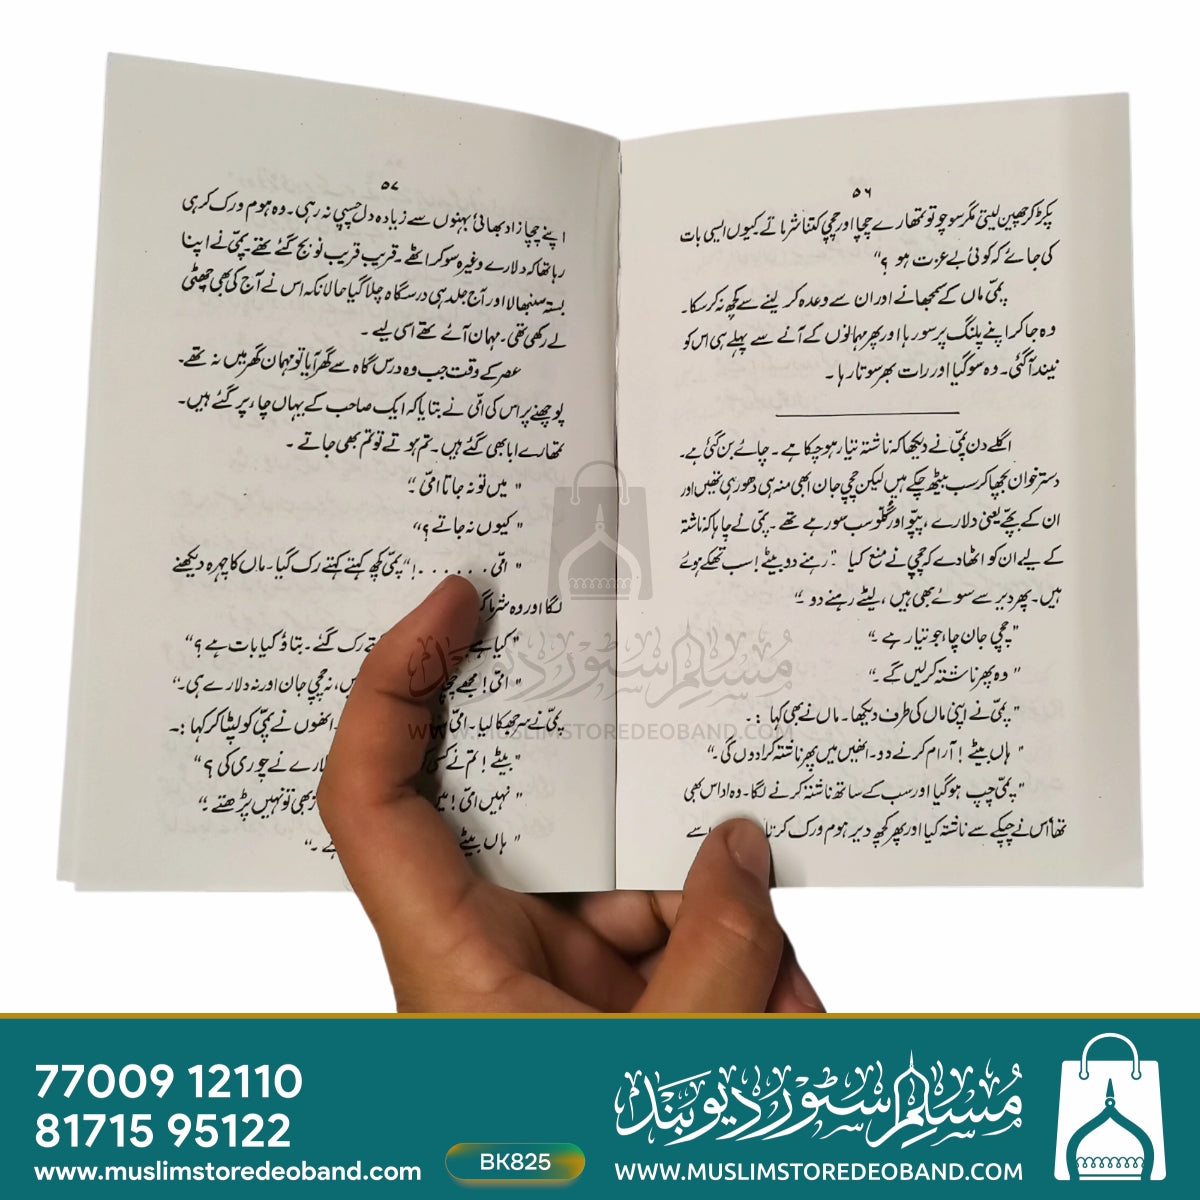 ۵۶
پکڑ کر چھین لیتی مگر سوچو تو تمھارے چچا اور چچی کتنا شرماتے کیوں ایسی بات
کی جائے کہ کوئی بے عزت ہو ؟“
پمّی ماں کے سمجھانے اور ان سے وعدہ کر لینے سے کچھ نہ کر سکا۔
وہ جا کر اپنے پلنگ پر سو رہا اور پھر مہمانوں کے آنے سے پہلے ہی اس کو
نیند آگئی۔ وہ سو گیا اور رات بھر سوتا رہا ۔
اگلے دن پمّی نے دیکھا کہ ناشتہ تیار ہو چکا ہے ۔ چائے بن گئی ہے۔
دسترخوان بچھا کر سب بیٹھ چکے ہیں لیکن چچی جان ابھی منہ ہی دھو رہی تھیں اور
ان کے بچّے یعنی دلارے ، پپّو اور گلّو سب سو رہے تھے ۔ پمّی نے چاہا کہ ناشتہ
کے لیے ان کو اٹھا دے کہ چچی نے منع کیا "رہنے دو بیٹے ! سب تھکے ہوئے
ہیں۔ پھر دیر سے سوئے بھی ہیں ، لیٹے رہنے دو ۔“
"چچی جان چاء جو تیار ہے ۔“
"وہ پھر ناشتہ کر لیں گے ۔“
"پمّی نے اپنی ماں کی طرف دیکھا۔ ماں نے بھی کہا :۔
"ہاں بیٹے ! آرام کرنے دو۔ انھیں میں پھر ناشتہ کرا دوں گی ۔“
"پمّی چپ ہو گیا اور سب کے ساتھ ناشتہ کرنے لگا۔ وہ اداس بھی
تھا اس نے چپکے سے ناشتہ کیا اور پھر کچھ دیر ہوم ورک کرتا سے
۵۷
اپنے چچا زاد بھائی بہنوں سے زیادہ دل چسپی نہ رہی ۔ وہ ہوم ورک کر ہی
رہا تھا کہ دلارے وغیرہ سو کر اٹھے ۔ قریب قریب نو بج گئے تھے ۔ پمّی نے اپنا
بستہ سنبھالا اور آج جلد ہی درسگاہ چلا گیا حالانکہ اس نے آج کی بھی چھٹی
لے رکھی تھی ۔ مہمان آئے تھے اسی لیے ۔
عصر کے وقت جب وہ درس گاہ سے گھر آیا تو مہمان گھر میں نہ تھے۔
پوچھنے پر اس کی امّی نے بتایا کہ ایک صاحب کے یہاں چاء پر گئے ہیں۔
تمھارے ابا بھی گئے ہیں۔ تم ہوتے تو تم بھی جاتے ۔
"میں تو نہ جاتا امّی ۔“
"کیوں نہ جاتے ؟“
"امّی . . . . . . !“ پمّی کچھ کہتے کہتے رک گیا۔ ماں کا چہرہ دیکھنے
لگا اور وہ شرما
"کیا رک گئے ۔ بتاؤ کیا بات ہے ؟“
"امّی ! مجھے نہ چچی جان اور نہ دلارے ہی ۔“
پمّی نے سر جھکا لیا۔ امّی انھوں نے پمّی کو لپٹا کر کہا :۔
"بیٹے ! تم نے دلارے نے چوری کی ؟“
"نہیں امّی ! بھی تو نہیں پڑھتے ۔“
"ہاں بیٹے
مسلم سٹور دیوبند
WWW.MUSLIMSTOREDEOBAND.COM
77009 12110
81715 95122
www.muslimstoredeoband.com
BK825
مسلم سٹور دیوبند
WWW.MUSLIMSTOREDEOBAND.COM